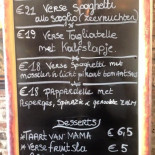 €21 Verse Spaghetti
alle scoglio (zeevruchten)
€19 Verse Tagliatelle
met Kalfslapje.
€18 Verse Spaghetti met
mosselen in licht pikante tomatensaus
€18 Pappardelle met
Asperges, Spinazie & gerookte zalm
Desserts!
Taart van mama € 6,5
Verse fruitsla € 5